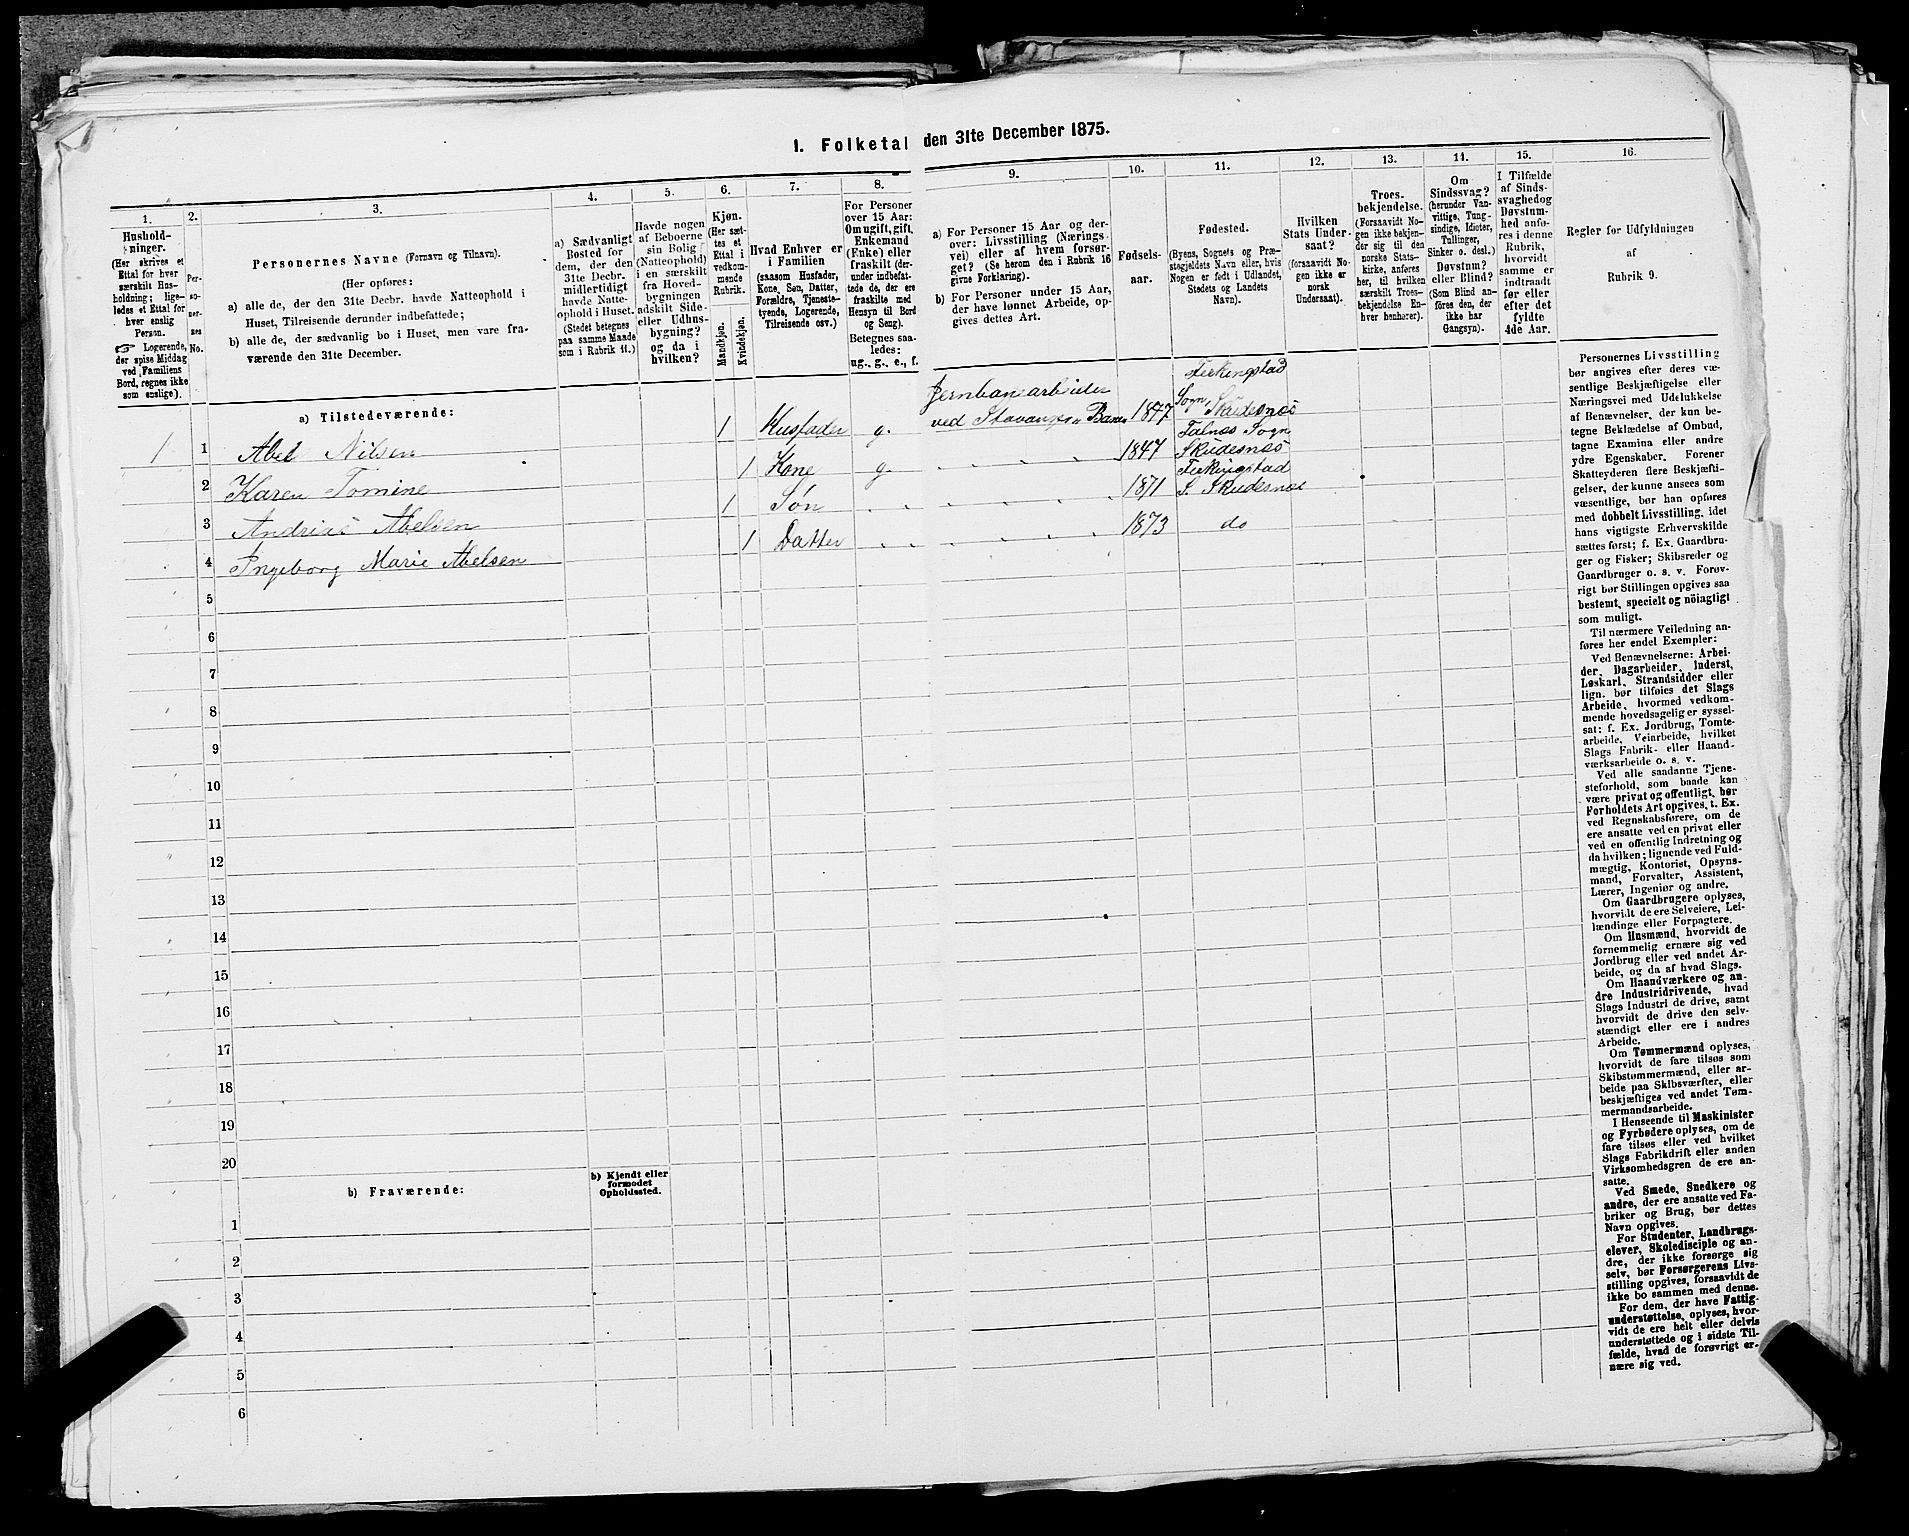 1. Folketal den 31te December 1875.
1.
2.
3.
4.
5.
6.
7.
8.
9.
10.
11.
12.
13.
14.
15.
16.
Hushold-
ninger.
(Her skrives et
Ettal for hver
særskilt Hus-
holdning; lige-
ledes et Ettal for
hver enslig
Person.
☞ Logerende,
der spise Middag
ved Familiens
Bord, regnes ikke
som enslige).
Per-
so-
ner-
nes
No.
Personernes Navne (Fornavn og Tilnavn).
(Her opføres:
a) alle de, der den 31te Decbr. havde Natteophold i
Huset, Tilreisende derunder indbefattede;
b) alle de, der sædvanlig bo i Huset, men vare fra-
værende den 31te December.
a) Sædvanligt
Bosted for
dem, der den
31te Decbr.
midlertidigt
havde Natte-
ophold i Huset.
(Stedet betegnes
paa samme Maade
som i Rubrik 11.)
Havde nogen
af Beboerne
sin Bolig
(Natteophold)
i en særskilt
fra Hoved-
bygningen
adskilt Side-
eller Udhus-
bygning?
og da i
hvilken?
Kjøn.
(Her sæt-
tes et
Ettal i
vedkom-
mende
Rubrik.
Mandkjøn.
Kvindekjøn.
Hvad Enhver er
i Familien
(saasom Husfader,
Kone, Søn, Datter,
Forældre, Tjeneste-
tyende, Logerende,
Tilreisende osv.)
For Personer
over 15 Aar:
Om ugift, gift,
Enkemand
(Enke) eller
fraskilt (der-
under indbefat-
tede de, der ere
fraskilte med
Hensyn til Bord
og Seng).
Betegnes saa-
ledes:
ug., g., e., f.
a) For Personer 15 Aar og der-
over: Livsstilling (Nærings-
vei) eller af hvem forsør-
get? (Se herom den i Rubrik 16
givne Forklaring).
b) For Personer under 15 Aar,
der have lønnet Arbeide, op-
gives dettes Art.
Fødsels-
aar.
Fødested.
(Byens, Sognets og Præ-
stegjeldets Navn eller, hvis
Nogen er født i Udlandet,
Stedets og Landets
Navn).
Hvilken
Stats Under-
saat?
(forsaavidt No-
gen ikke er
norsk
Undersaat).
Troes-
bekjendelse.
(Forsaavidt No-
gen ikke bekjen-
der sig til den
norske Stats-
kirke, anføres
her, til hvilken
særskilt Troes-
bekjendelse En-
hver henhører).
Om
Sindssvag?
(herunder Van-
vittige, Tung-
sindige, Idioter,
Tullinger,
Sinker o. desl.)
Døvstum?
eller Blind?
(Som Blind an-
føres den, der
ikke har
Gangsyn).
I Tilfælde
af Sinds-
svaghedog
Døvstum-
hed anfø-
res i denne
Rubrik,
hvorvidt
samme er
indtraadt
før eller
efter det
fyldte
4de Aar.
Regler for Udfyldningen
af
Rubrik 9.
a) Tilstedeværende:
1 1 Abel Nilsen 1 Husfader g. Jernbanearbeider ved Stavanger Banen 1847 Ferkingstad Sogn, Skudesnæs
2 Karen Tomine 1 Kone g. 1847 Falnæs Sogn Skudesnæs
3 Andrias Abelsen 1 Søn 1871 Ferkingstad S. Skudesnæs
4 Ingeborg Marie Abelsen 1 Datter 1873 do
5
6
7
8
9
10
11
12
13
14
15
16
17
18
19
20
b) Fraværende:
b) Kjendt eller
formodet
Opholdssted.
1
2
3
4
5
6
Personernes Livsstilling
bør angives efter deres væ-
sentlige Beskjæftigelse eller
Næringsvei med Udelukkelse
af Benævnelser, der kun be-
tegne Beklædelse af Ombud,
tagne Examina eller andre
ydre Egenskaber. Forener
Skatteyderen flere Beskjæfti-
gelser, der kunne ansees som
væsentlige, bør han opføres
med dobbelt Livsstilling, idet
hans vigtigste Erhvervskilde
sættes først; f. Ex. Gaardbru-
ger og Fisker; Skibsreder og
Gaardbruger o. s. v. Forøv-
rigt bør Stillingen opgives saa
bestemt, specielt og nöiagtigt
som muligt.
Til nærmere Veiledning an-
føres her endel Exempler:
Ved Benævnelserne: Arbei-
der, Dagarbeider, Inderst,
Løskarl, Strandsidder eller
lign. bør tilføies det Slags
Arbeide, hvormed vedkom-
mende hovedsagelig er syssel-
sat: f. Ex. Jordbrug, Tomte-
arbeide, Veiarbeide, hvilket
Slags Fabrik- eller Haand-
værksarbeide o. s. v.
Ved alle saadanne Tjene-
steforhold, som baade kan
være privat og offentligt, bør
Forholdets Art opgives, t. Ex.
ved Regnskabsførere, om de
ere ansatte ved en privat eller
ved en offentlig Indretning og
da hvilken; lignende ved Fuld-
mægtig, Kontorist, Opsyns-
mand, Forvalter, Assistent,
Lærer, Ingeniør og andre.
Om Gaardbrugere oplyses,
hvorvidt de ere Selveiere, Lei-
lændinge eller Forpagtere.
Om Husmænd, hvorvidt de
fornemmelig ernære sig ved
Jordbrug eller ved andet Ar-
beide, og da af hvad Slags.
Om Haandværkere og an-
dre Industridrivende, hvad
Slags Industri de drive, samt
hvorvidt de drive den selv-
stændigt eller ere i andres
Arbeide.
Om Tømmermænd oplyses,
hvorvidt de fare tilsøs som
Skibstømmermænd, eller ar-
beide paa Skibsværfter, eller
beskjæftiges ved andet Tøm-
mermandsarbeide.
I Henseende til Maskinister
og Fyrbødere oplyses, om de
fare tilsøs eller ved hvilket
Slags Fabrikdrift eller anden
Virksomhedsgren de ere an-
satte.
Ved Smede, Snedkere og
andre, der ere ansatte ved Fa-
briker og Brug, bør dettes
Navn opgives.
For Studenter, Landbrugs-
elever, Skoledisciple og an-
dre, der ikke forsørge sig
selv, bør Forsørgerens Livs-
stilling opgives, forsaavidt de
ikke bo sammen med denne.
For dem, der have Fattig-
understøttelse, oplyses, hvor-
vidt de ere helt eller delvis
understøttede og i sidste Til-
fælde, hvad de forøvrigt er-
nære sig ved.